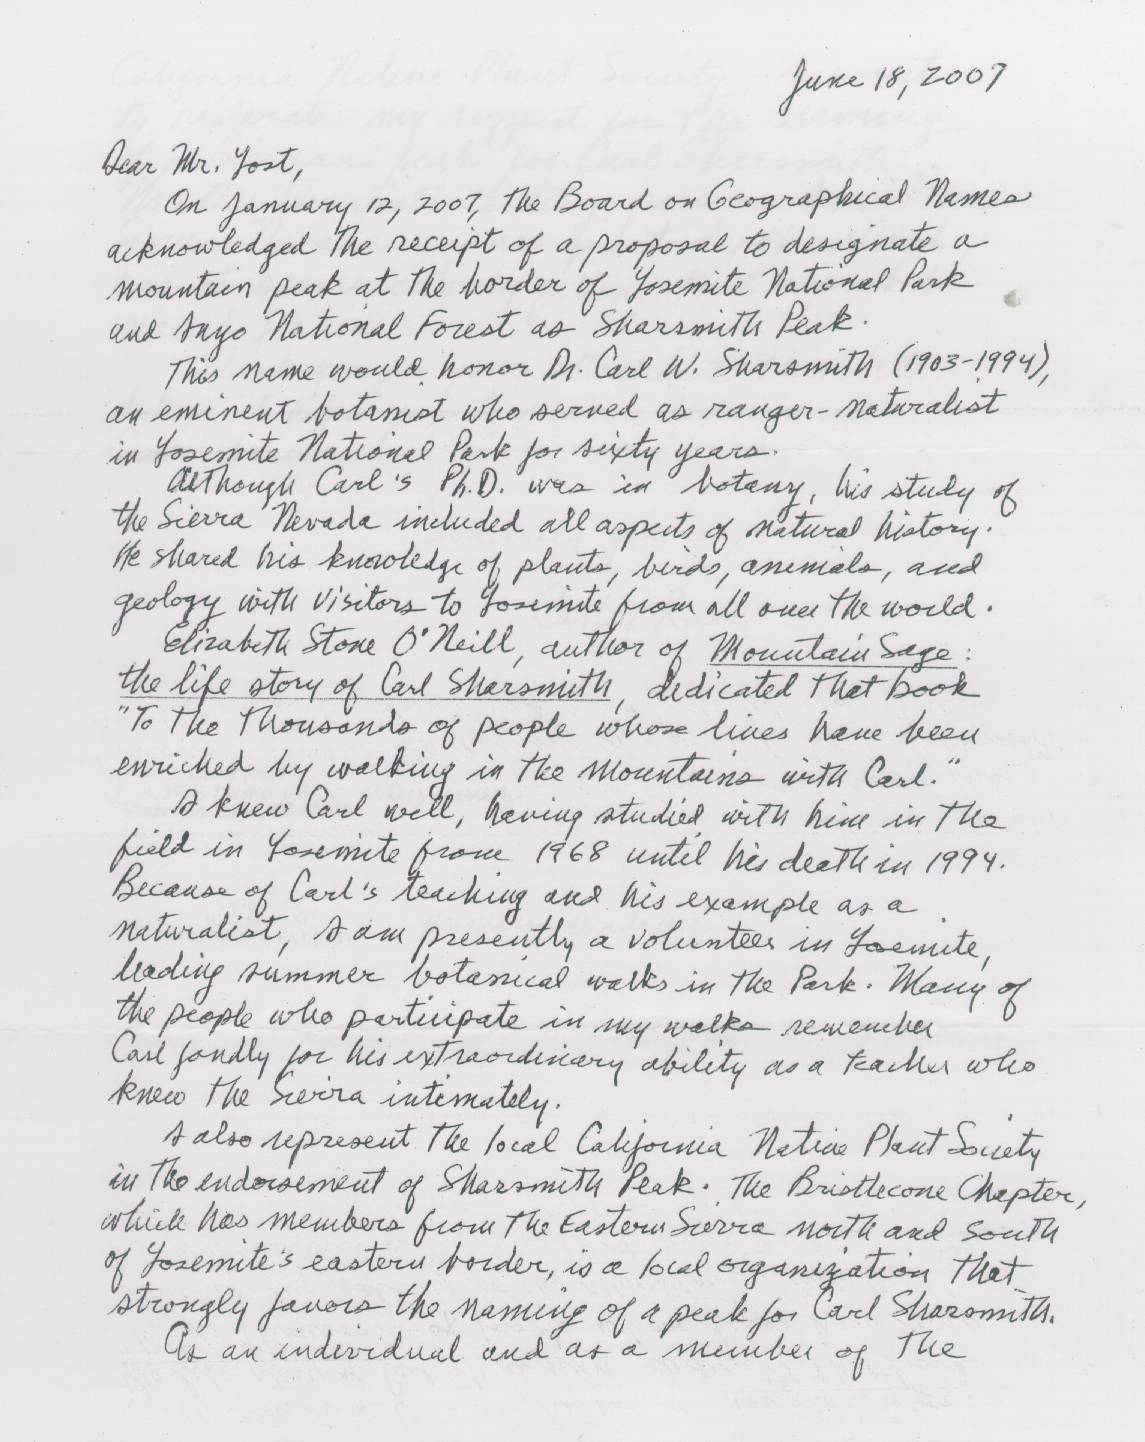 June 18, 2007
Dear Mr. Yost,
On January 12, 2007, the Board on Geographical Names
acknowledged the receipt of a proposal to designate a
mountain peak at the border of Yosemite National Park
and Inyo National Forest as Sharsmith Peak.
This name would honor Dr. Carl W. Sharsmith (1903-1994),
an eminent botanist who served as ranger-naturalist
in Yosemite National Park for sixty years.
Although Carl's Ph.D. was in botany, his study of
the Sierra Nevada included all aspects of natural history.
He shared his knowledge of plants, birds, animals, and
geology with visitors to Yosemite from all over the world.
Elizabeth Stone O'Neill, author of Mountain Sage:
the life story of Carl Sharsmith, dedicated that book
"To the thousands of people whose lives have been
enriched by walking in the mountains with Carl."
I knew Carl well, having studied with him in the
field in Yosemite from 1968 until his death in 1994.
Because of Carl's teaching and his example as a
naturalist, I am presently a volunteer in Yosemite,
leading summer botanical walks in the Park. Many of
the people who participate in my walks remember
Carl fondly for his extraordinary ability as a teacher who
knew the Sierra intimately.
I also represent the local California Native Plant Society
in the endorsement of Sharsmith Peak. The Bristlecone Chapter,
which has members from the Eastern Sierra north and south
of Yosemite's eastern border, is a local organization that
strongly favors the naming of a peak for Carl Sharsmith.
As an individual and as a member of the